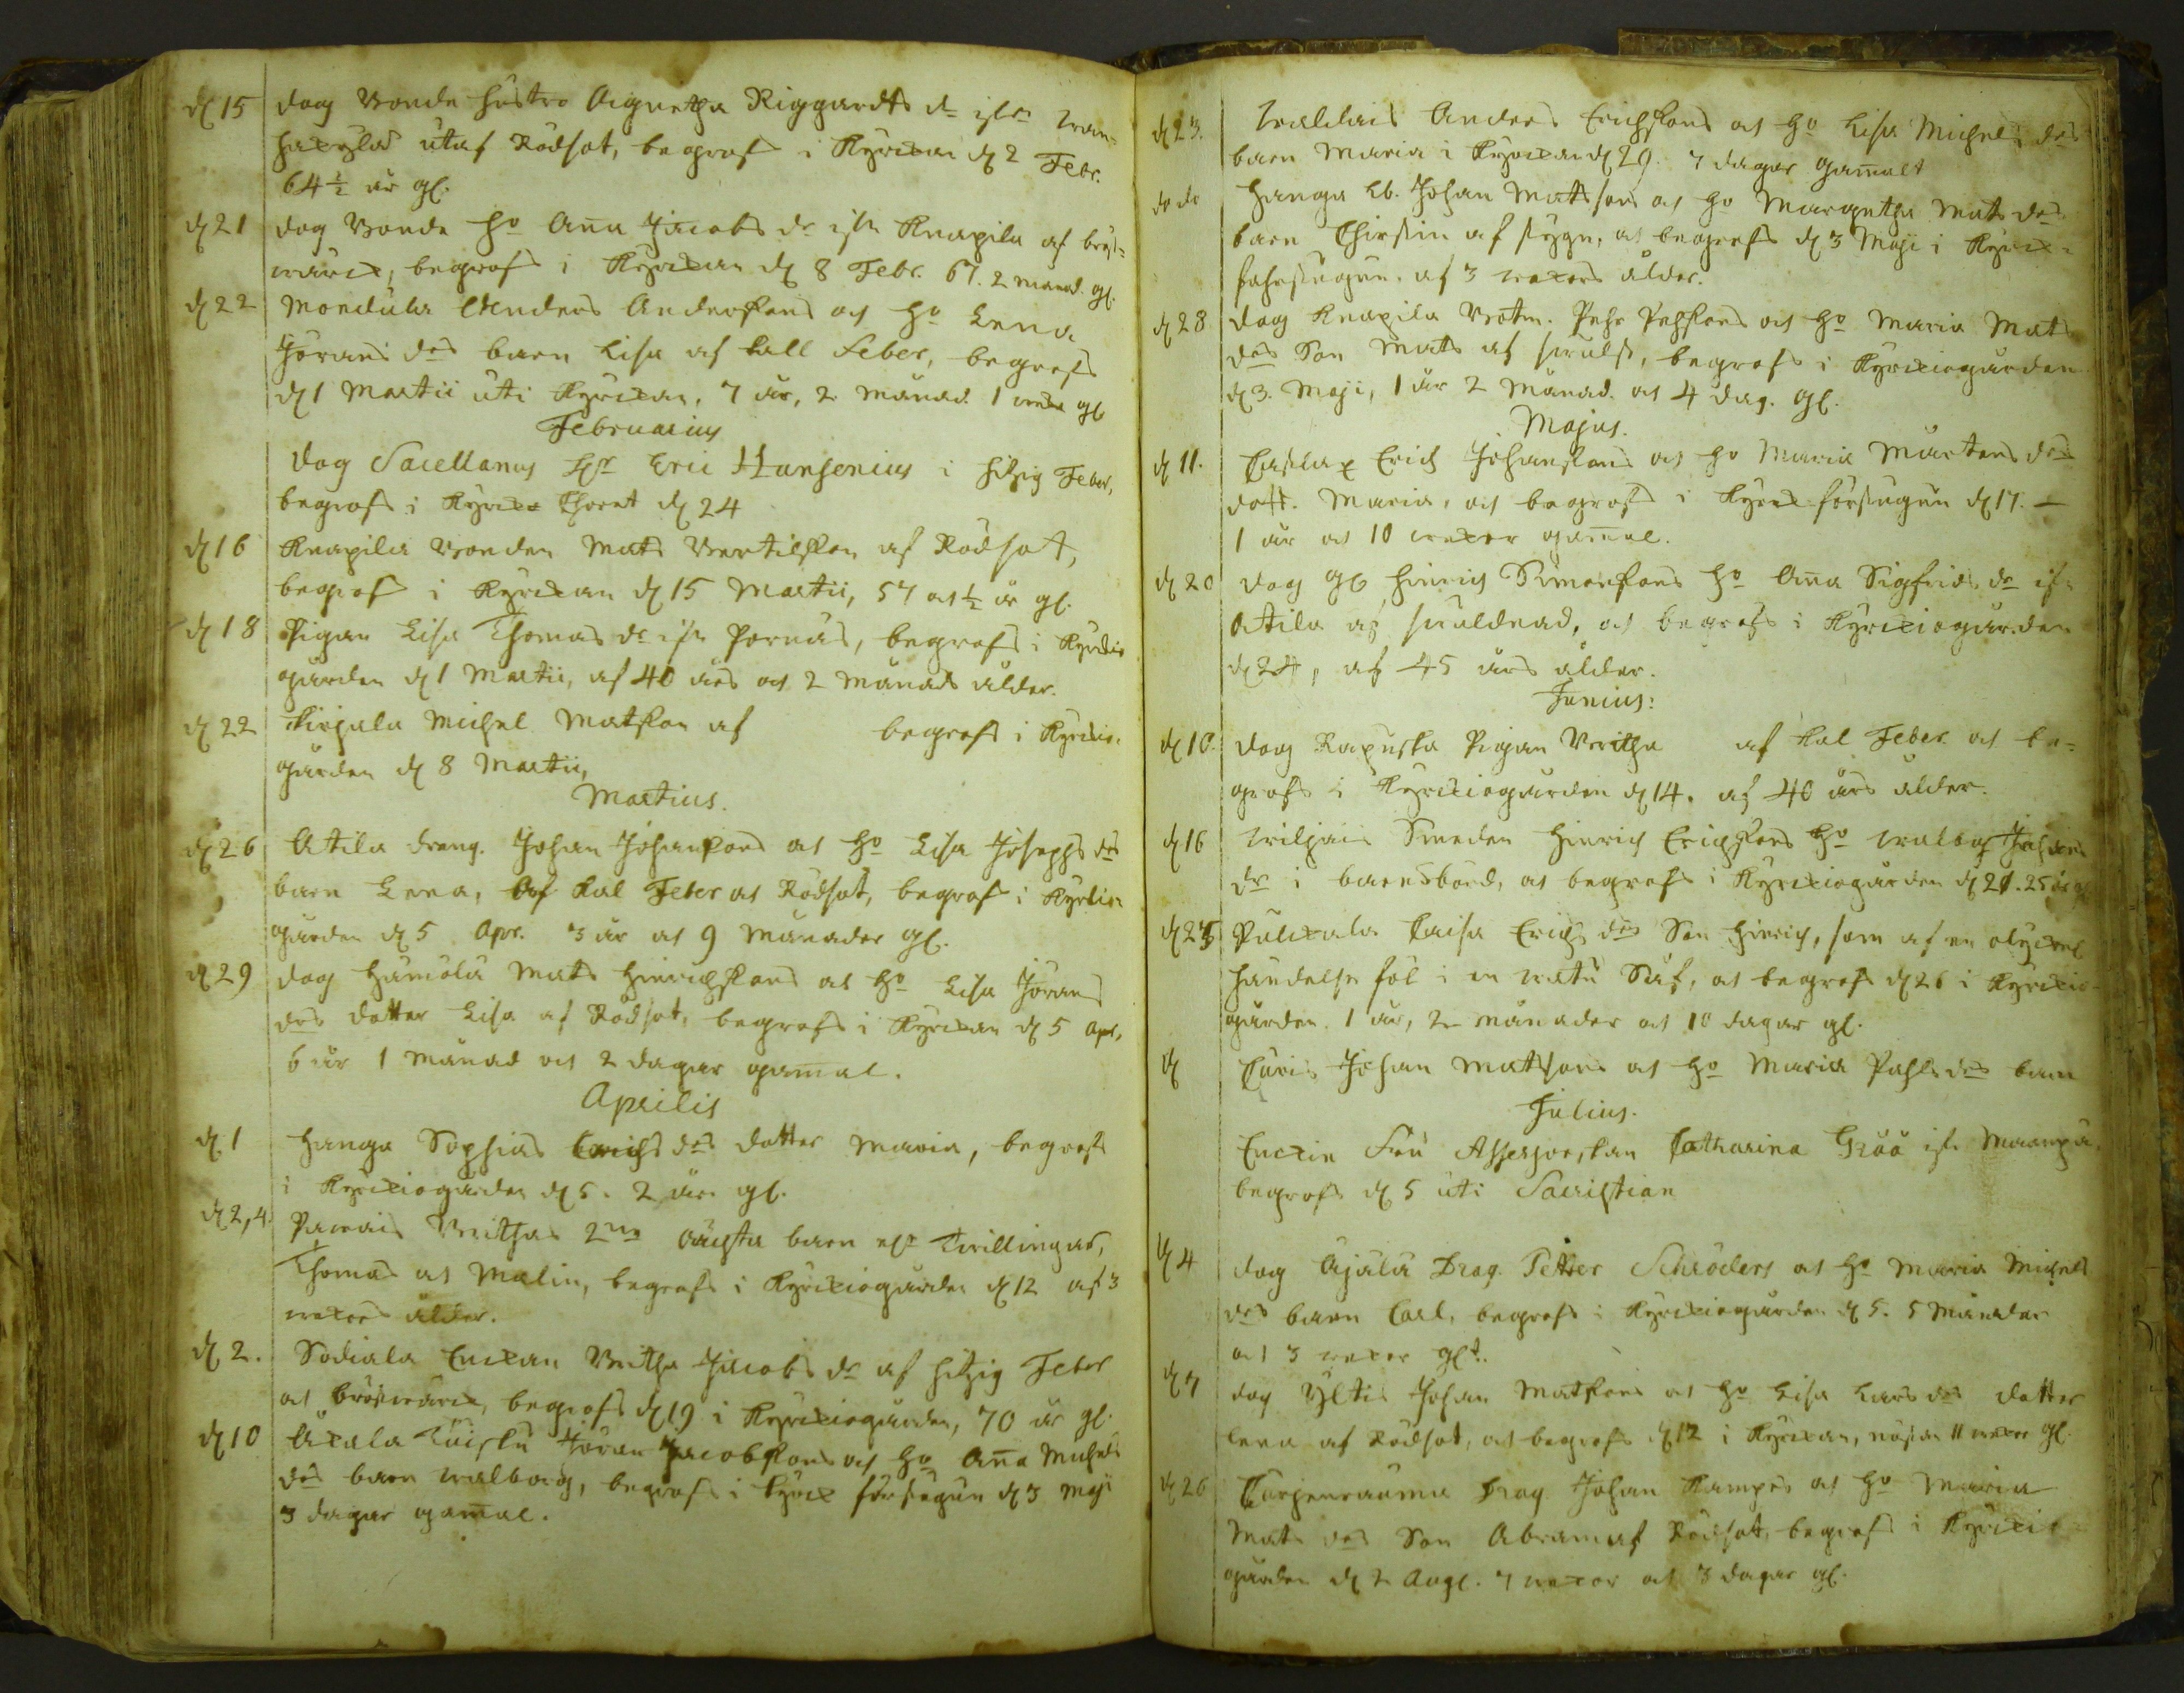 d 15 dog Bonde hustro Agnetha Riggardts dr ifrn
utaf Rödsot, begrofs i Kyrckan d 2 Febr.
64 1/2 år gl.
d 21 dog Bonde ho Aña Jacobs dr ifrn Knapila af bröst=
wärck, begrofs i Kyrckan d 8 Febr. 67. 2 månad. gl.
d 22 Anders Andersson och ho Lena
Jörans drs barn Lisa af kall Feber, begrofs
d 1 Martii uti Kyrckan, 7 år, 2 månad. 1 gl
Februarius
dog Sacellanus Hr Eric Hansenius i hitzig Feber,
begrofs i Kyrckio Choret d 24
d 16 Knapila Bonden Mats Bertilsson af Rödsot,
begrofs i Kyrckan d 15 Martii, 57 och 1/2 år gl.
d 18 Pigan Lisa Thomas dr ifrn Pornäs, begrofs i Kyrckio
gården d 1 Martii, af 40 års och 2 månads ålder.
d 22 Michel Matsson af begrofs i Kyrckio=
gården d 8 Martii,
Martius.
d 26 Atila dräng. Johan Johanssons och ho Lisa Josephs drs
barn Lena, af kal Feber och Rödsot, begrofs i Kyrckio
gården d 5 Apr. 3 år och 9 månader gl.
d 29 dog Hamola Mats Hinrichssons och ho Lisa Jörans
drs dotter Lisa af Rödsot, begrofs i Kyrckan d 5 Apr,
6 år 1 månad och 2 dagar gam̄al.
Aprilis
d. 1 Hanga Sophias drs dotter Maria, begrofs
i Kyrckiogården d 5. 2 år gl.
d 2,4. Brithas 2ne oächta barn Twillingar,
Thomas och Malin, begrofs i Kyrckiogården d 12 af 3
wekors ålder.
d 2. Sodiala Enckan Britha Jacobs dr af hitzig Feber
och bröstwärck, begrofs d 19 i Kyrckiogården, 70 år gl.
d 10 Jöran Jacobssons och ho Aña Michels
drs barn Walborg, begrofs i Kyrck förstugun d 3 Maji
3 dagar gam̄al.
d 23. Anders Erichssons och ho Lisa Michels drs
barn Maria i Kyrckan d 29. 7 dagar gam̄alt
do do Hanga Johan Matssons och ho Margetha Mats drs
barn Chirstin af och begrofs d 3 Maji i Kyrck=
förstugun. af 3 wekors ålder.
d 28 dog Knapila Pehr Pehrssons och ho Maria Mats
drs Son Mats af begrofs i Kyrckiogården
d 3. Maji, 1 år 2 månad. och 4 dag. gl.
Majus.
d 11. Erich Johanssons och ho Maria Mårtens drs
dott. Maria, och begrofs i Kyrck förstugun d 17. –
1 år och 10 wekor gam̄al.
d 20 dog gl Hinrich Simonssons ho Aña Sigfrids dr ifrn
Atila af och begrofs i Kyrckiogården
d 24, af 45 års ålder.
Junius:
d 10. dog Pigan Britha af kal Feber och be=
grofs i Kyrckiogården d 14. af 40 års ålder.
d 16 Smeden Hinrich Erichssons ho Walborg
dr i barnsbörd, och begrofs i Kyrckiogården d 21. 25 år
d 25 Caisa Erichs drs Son Hinrich, som af en olyckel
händelse föl i en och begrofs d 26 i Kyrckio=
gården. 1 år, 2 månader och 10 dagar gl.
d Johan Matssons och ho Maria Pahls drs barn
Julius.
Enckie Fru Assessorskan Catharina Gråå ifrn
begrofs d 5 uti Sacristian
d 4 dog Ajala Drag. Petter Schröders och ho Maria Michels
drs barn Carl, begrofs i Kyrckiogården d 5. 5 månader
och 3 wekor glt.
d 7 dog Yltis Johan Matssons och ho Lisa Lars drs dotter
Lena af Rödsot, och begrofs d 12 i Kyrckan, 11 wekor gl.
d 26 Drag. Johan Kampes och ho Maria
Mats drs Son Abram af Rödsot, begrofs i Kyrckio=
gården d 2 Aug. 7 wekor och 3 dagar gl.